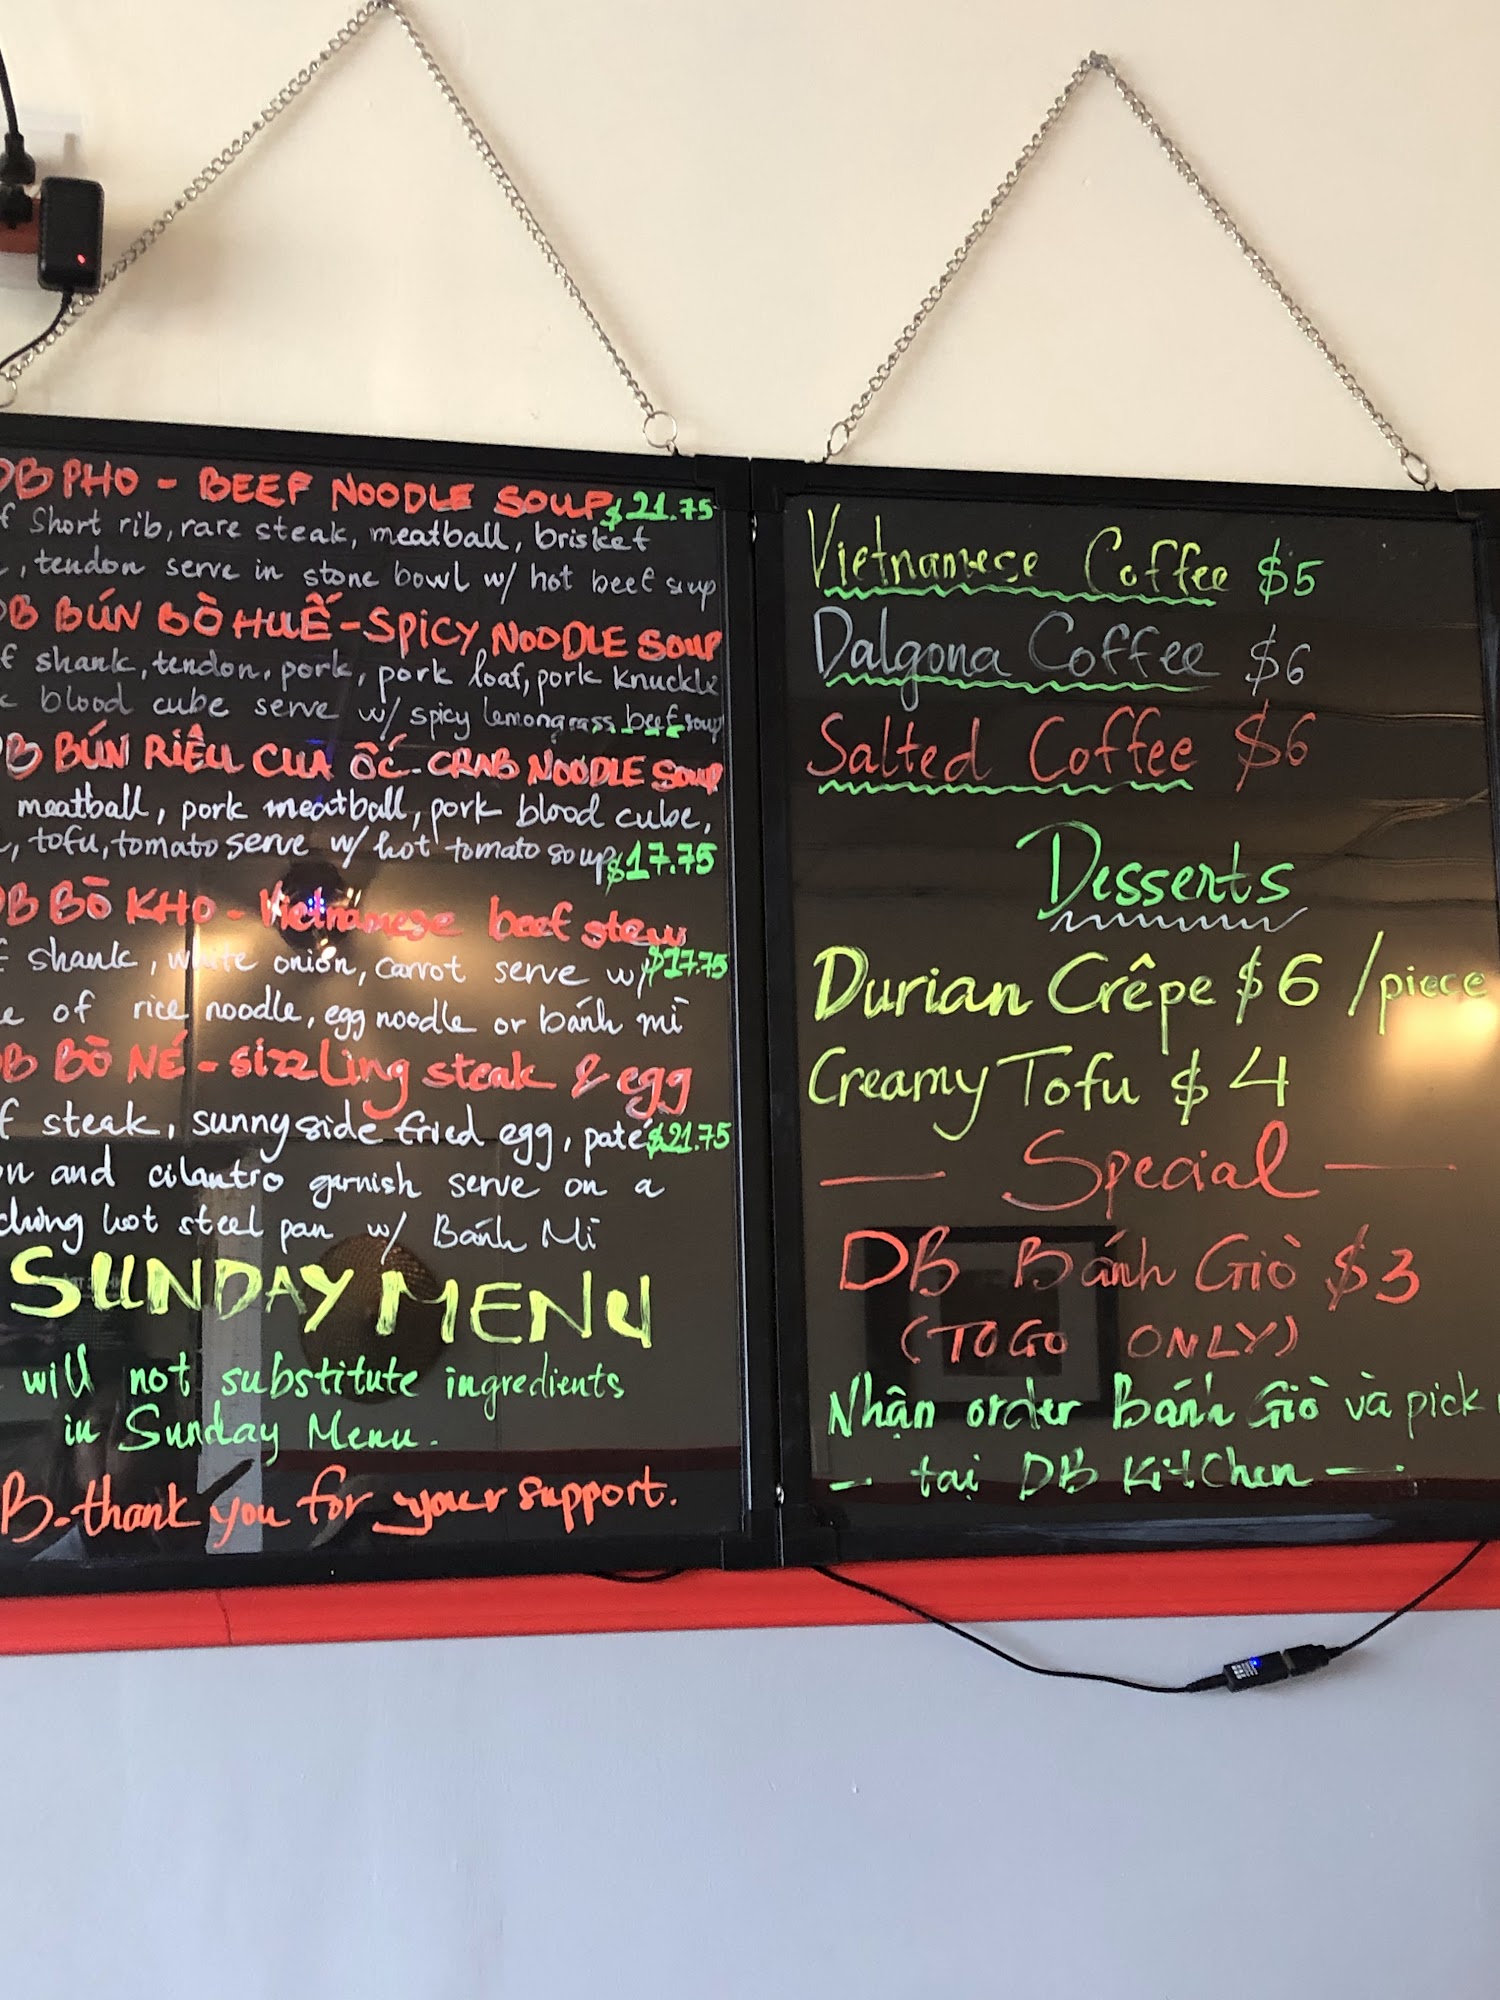 DB PHO - BEEF NOODLE SOUP $21.75
Short rib, rare steak, meatball, brisket
, tendon serve in stone bowl w/ hot beef soup
DB BÚN BÒ HUẾ - SPICY NOODLE SOUP
shank, tendon, pork, pork loaf, pork knuckle
blood cube serve w/ spicy lemongrass beef soup
DB BÚN RIÊU CUA ỐC - CRAB NOODLE SOUP
meatball, pork meatball, pork blood cube,
, tofu, tomato serve w/ hot tomato soup $17.75
DB BÒ KHO - Vietnamese beef stew
shank, white onion, carrot serve w/ $17.75
of rice noodle, egg noodle or bánh mì
DB BÒ NÉ - sizzling steak & egg
steak, sunny side fried egg, paté $21.75
and cilantro garnish serve on a
hot steel pan w/ Bánh Mì
SUNDAY MENU
will not substitute ingredients
in Sunday Menu.
B - thank you for your support.
Vietnamese Coffee $5
Dalgona Coffee $6
Salted Coffee $6
Desserts
Durian Crêpe $6 /piece
Creamy Tofu $4
— Special —
DB Bánh Giò $3
(TOGO ONLY)
Nhận order Bánh Giò và pick
— tại DB KitChen —